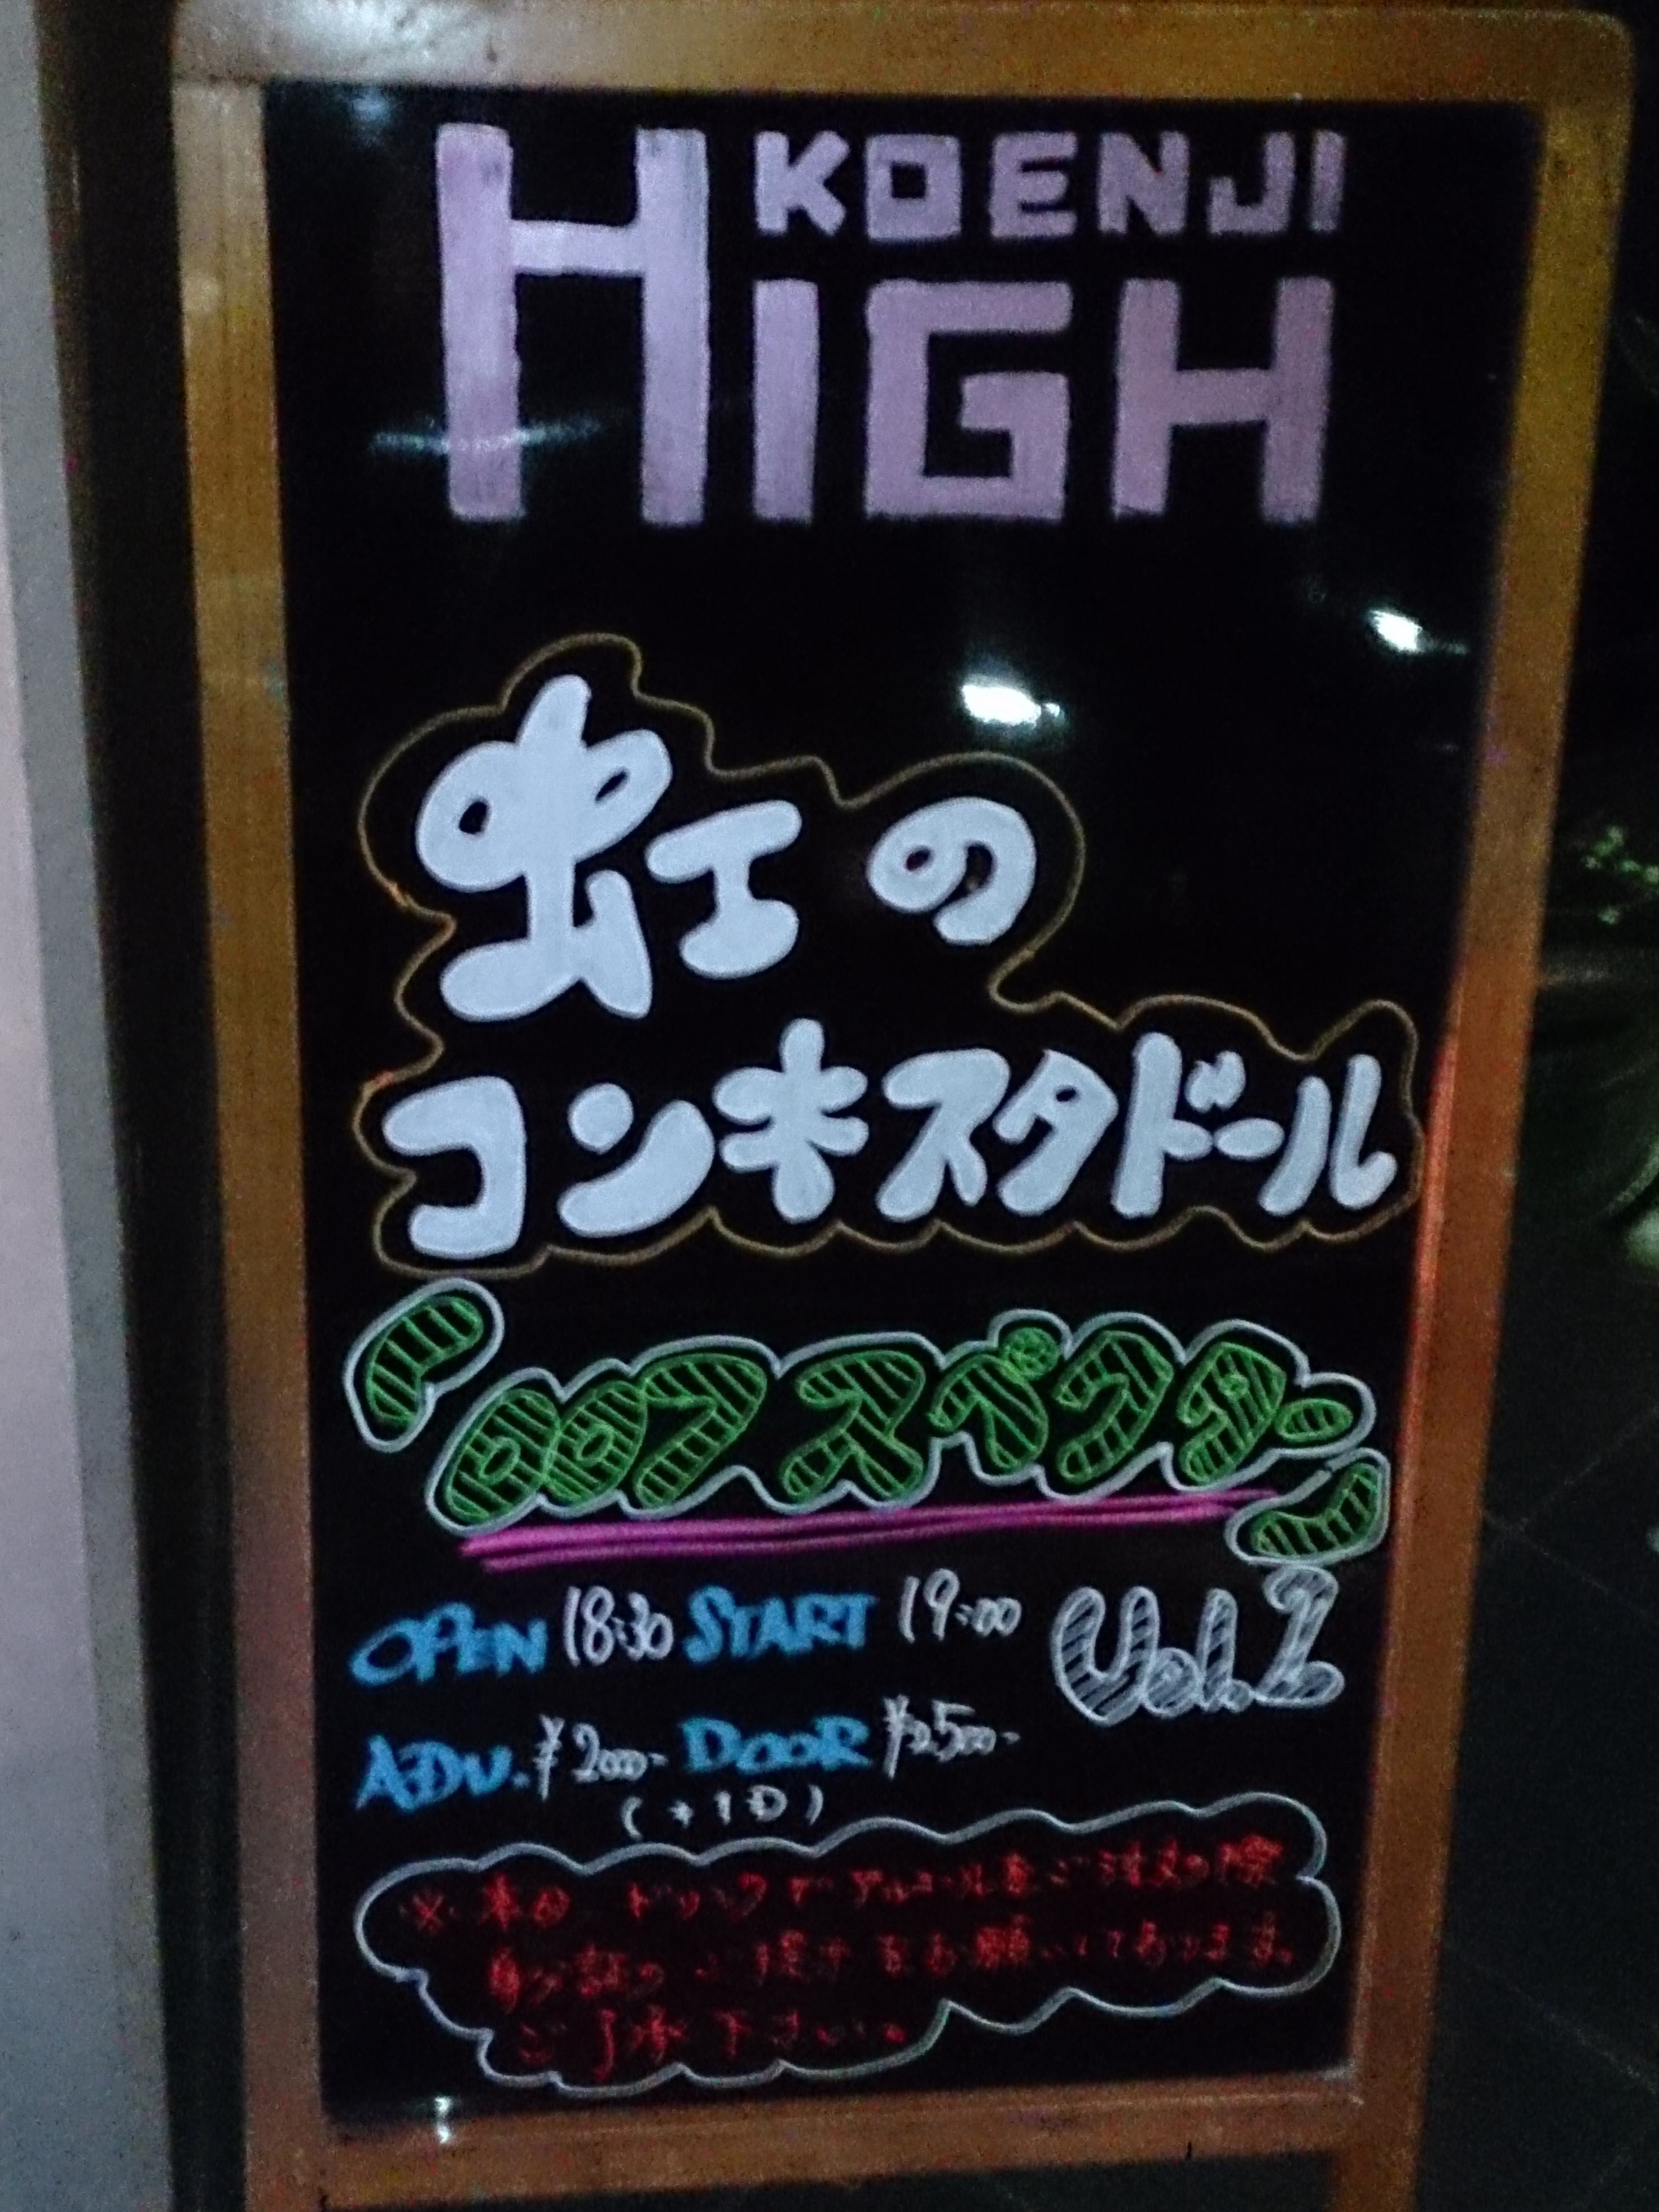 KOENJI
HIGH
虹の
コンキスタドール
「ロロフスペクター」
OPEN 18:30 START 19:00 Vol.2
ADV. ¥2000- DOOR ¥2500-
(+1D)
※本日 ドリンクでアルコールをご注文の際
身分証のご提示をお願いしております。
ご了承下さい。